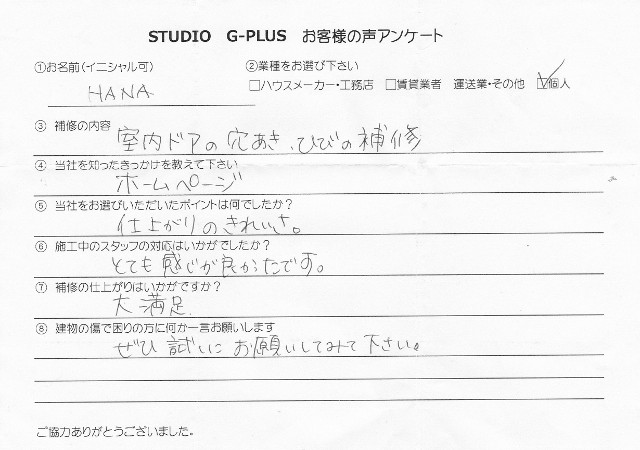 STUDIO G-PLUS お客様の声アンケート
①お名前(イニシャル可) ②業種をお選び下さい
HANA □ハウスメーカー・工務店 □賃貸業者 運送業・その他 ☑個人
③ 補修の内容
室内ドアの穴あき、ひびの補修
④ 当社を知ったきっかけを教えて下さい
ホームページ
⑤ 当社をお選びいただいたポイントは何でしたか?
仕上がりのきれいさ。
⑥ 施工中のスタッフの対応はいかがでしたか?
とても感じが良かったです。
⑦ 補修の仕上がりはいかがですか?
大満足
⑧ 建物の傷で困りの方に何か一言お願いします
ぜひ試しにお願いしてみて下さい。
ご協力ありがとうございました。